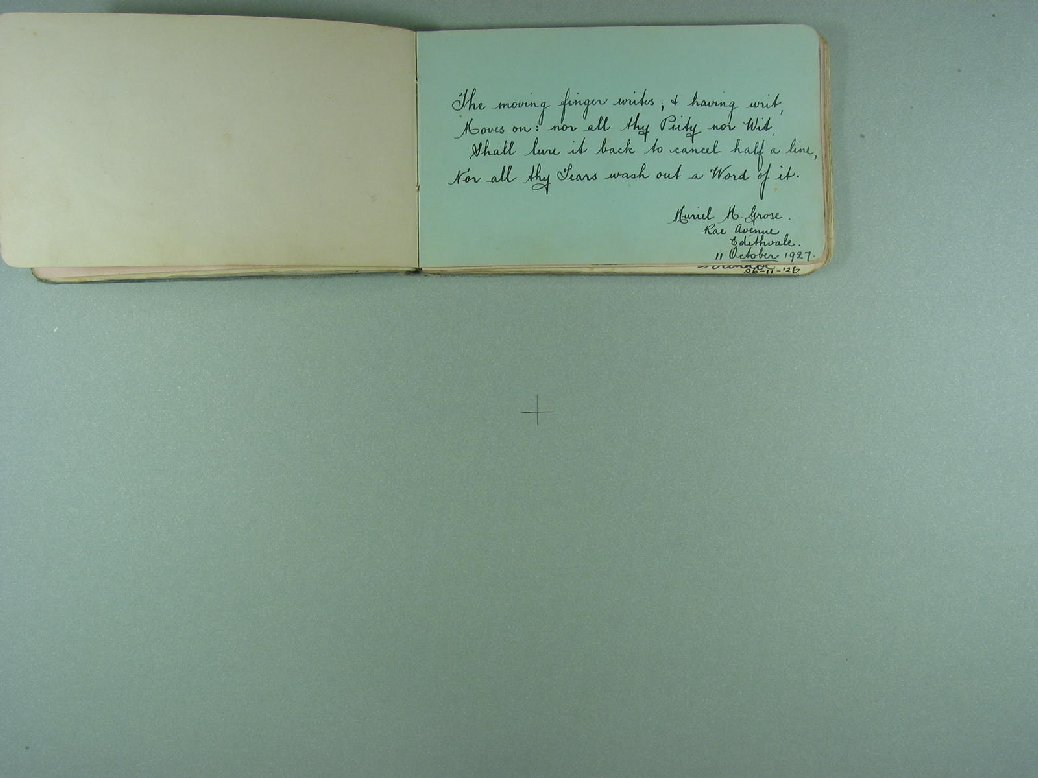 The moving finger writes, & having writ,
Moves on: nor all thy Piety nor Wit,
Shall lure it back to cancel half a line,
Nor all thy Tears wash out a Word of it.
Muriel M. Grose.
Rae Avenue
Edithvale.
11 October 1927.
26-11-'28